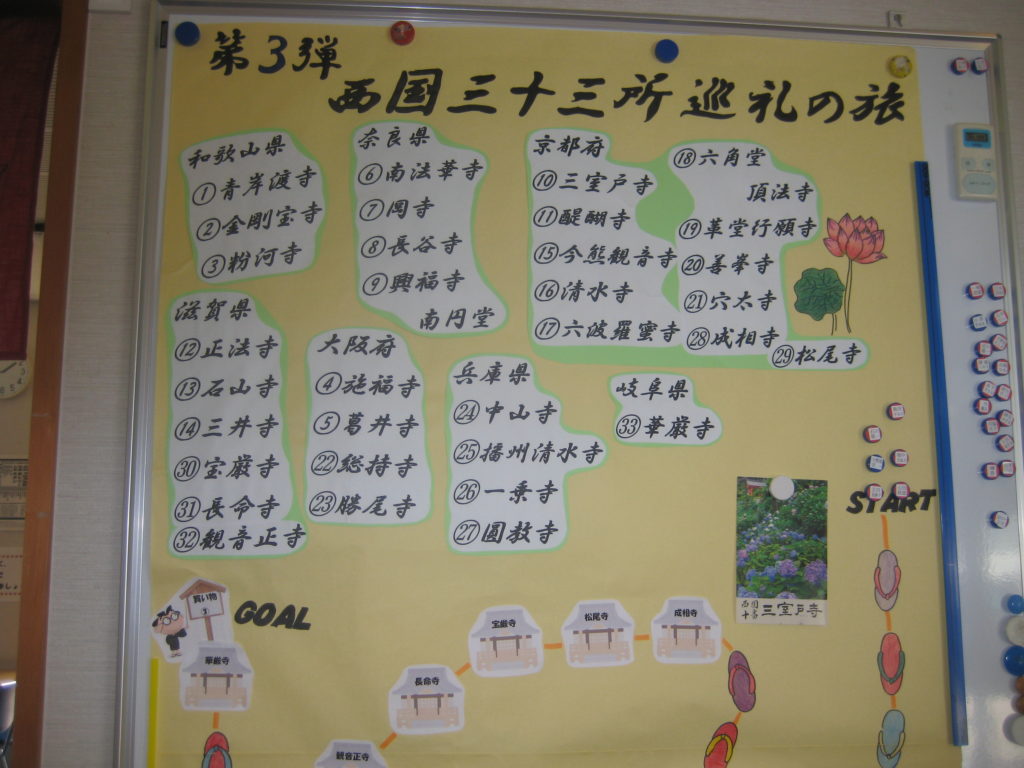 第3弾
西国三十三所巡礼の旅
和歌山県
①青岸渡寺
②金剛宝寺
③粉河寺
奈良県
⑥南法華寺
⑦岡寺
⑧長谷寺
⑨興福寺
南円堂
京都府
⑩三室戸寺
⑪醍醐寺
⑮今熊観音寺
⑯清水寺
⑰六波羅蜜寺
⑱六角堂
頂法寺
⑲革堂行願寺
⑳善峯寺
㉑穴太寺
㉘成相寺
㉙松尾寺
滋賀県
⑫正法寺
⑬石山寺
⑭三井寺
㉚宝厳寺
㉛長命寺
㉜観音正寺
大阪府
④施福寺
⑤葛井寺
㉒総持寺
㉓勝尾寺
兵庫県
㉔中山寺
㉕播州清水寺
㉖一乗寺
㉗圓教寺
岐阜県
㉝華厳寺
START
三室戸寺
買い物
GOAL
華厳寺
宝厳寺
松尾寺
成相寺
長命寺
観音正寺